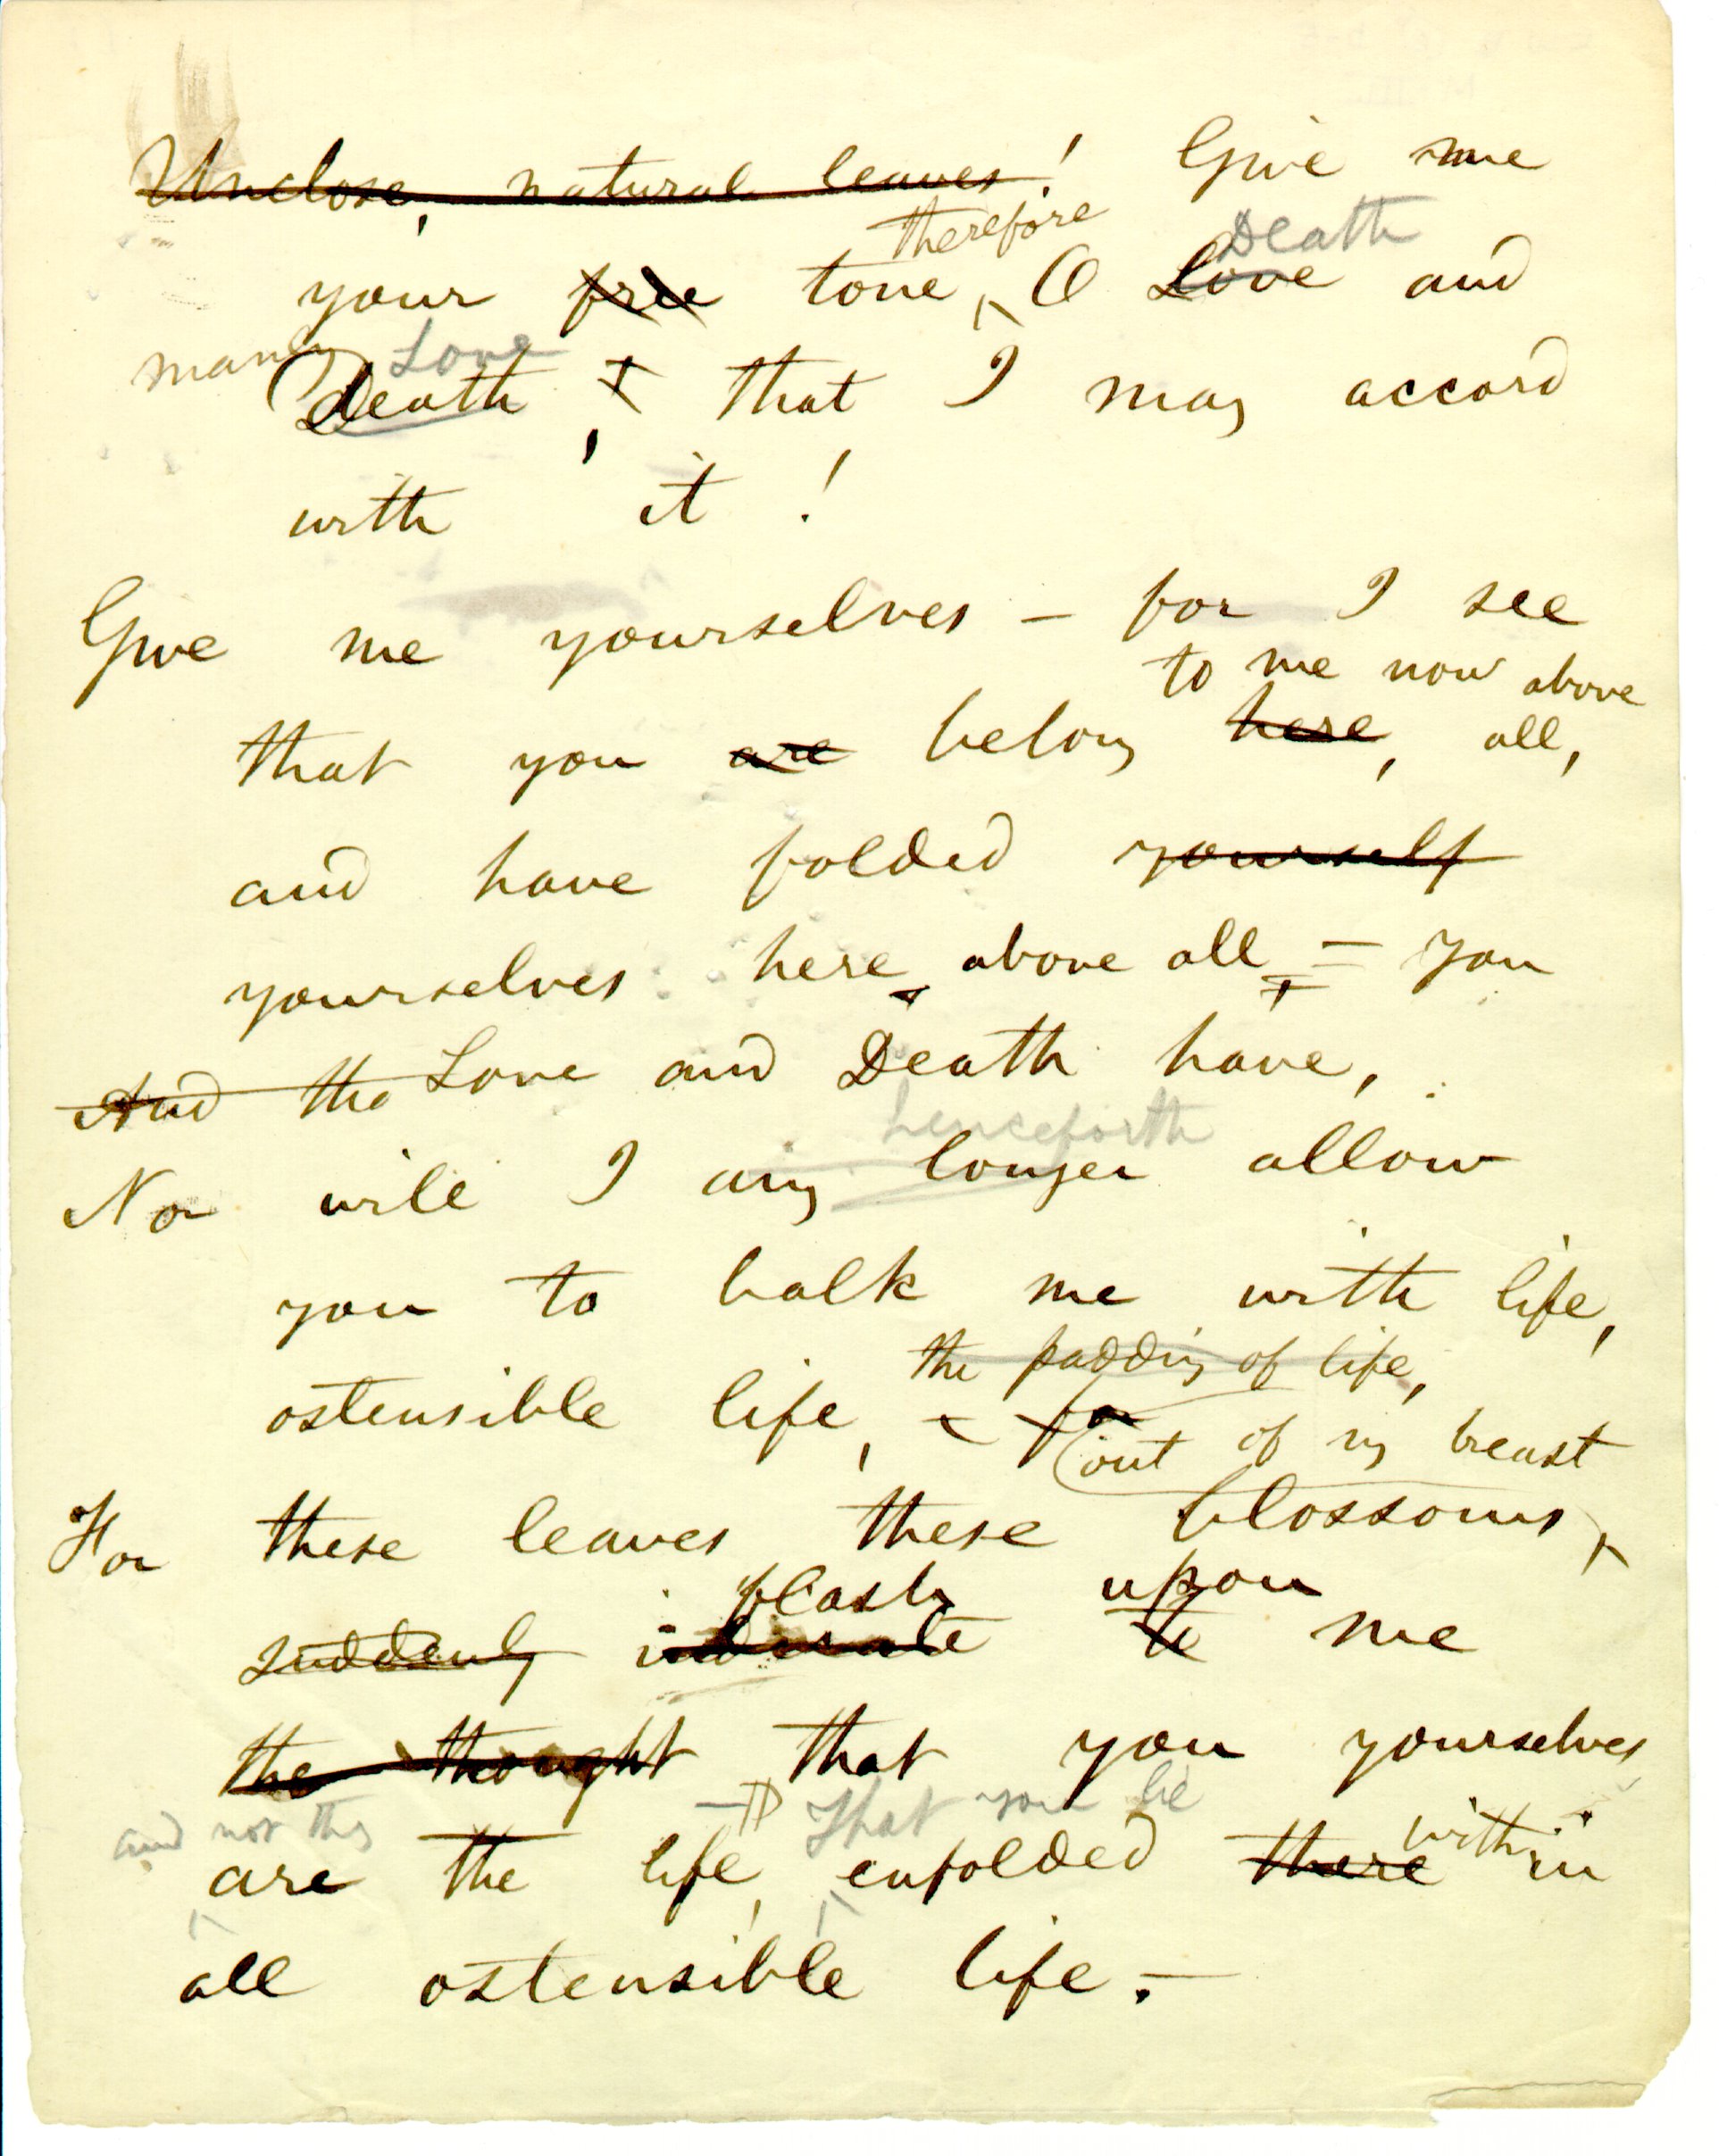 Unclose, natural leaves! Give me
therefore Death
your free tone, O Love and
manly Love
Death, that I may accord
with it!
Give me yourselves – for I see
to me now above
that you are belong here, all,
and have folded yourself
yourselves here above all – you
And the Love and Death have,
henceforth
Nor will I any longer allow
you to balk me with life,
the padding of life,
ostensible life, for
out of my breast
For these leaves these blossoms,
flash upon
suddenly indicate to me
the thought that you yourselves
and not this That you lie
are the life, enfolded there within
all ostensible life. –